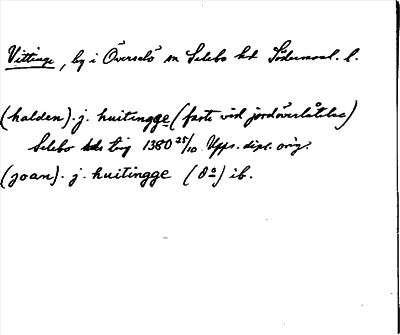 Vittinge, by i Överselö sn Selebo hd Södermanl. l.
(halden). j. huitingge (faste vid jordöverlåtelse)
Selebo hds ting 1380 25/10. Upps. dipl. orig.
(joan). j. huitingge (do) ib.